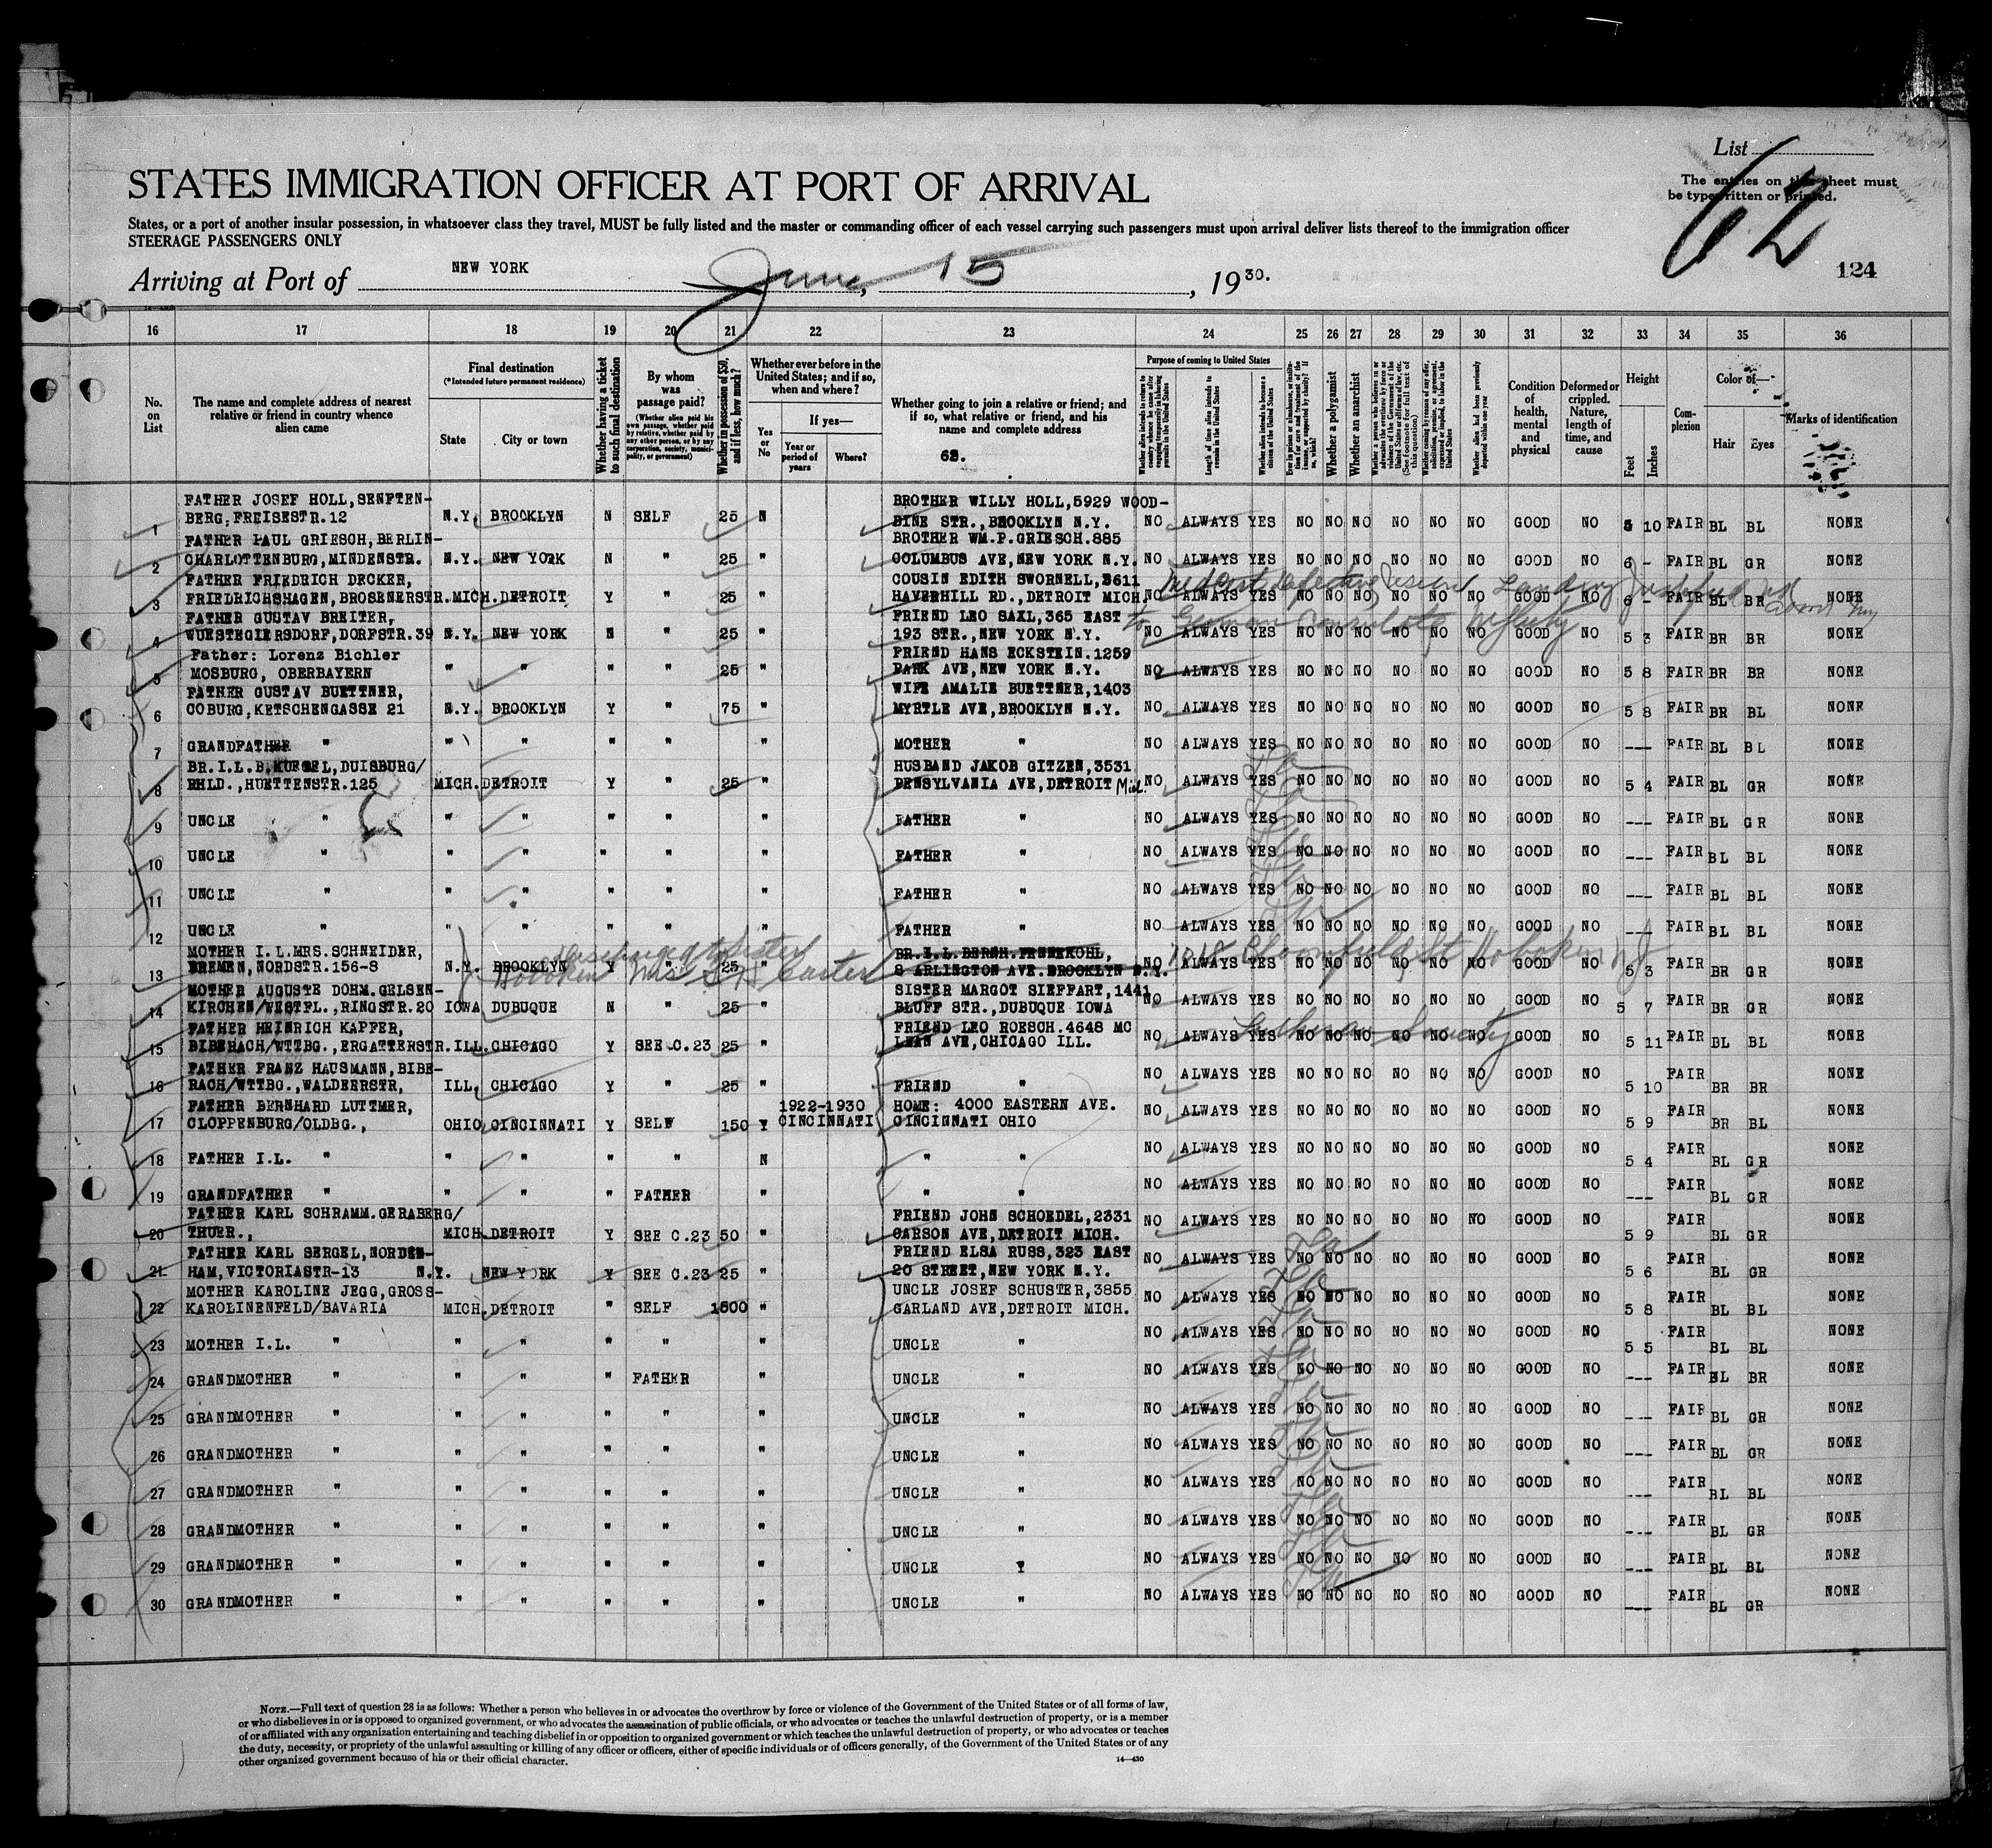 List
62
The entries on this sheet must
be typewritten or printed.
124
STATES IMMIGRATION OFFICER AT PORT OF ARRIVAL
States, or a port of another insular possession, in whatsoever class they travel, MUST be fully listed and the master or commanding officer of each vessel carrying such passengers must upon arrival deliver lists thereof to the immigration officer
STEERAGE PASSENGERS ONLY
Arriving at Port of NEW YORK, June 15, 1930.
16 17 18 19 20 21 22 23 24 25 26 27 28 29 30 31 32 33 34 35 36
No. on List
The name and complete address of nearest relative or friend in country whence alien came
Final destination
(*Intended future permanent residence)
State
City or town
Whether having a ticket to such final destination
By whom was passage paid?
(Whether alien paid his own passage, whether paid by relative, whether paid by any other person, or by any corporation, society, municipality, or government)
Whether in possession of $50, and if less, how much?
Whether ever before in the United States; and if so, when and where?
Yes or No
If yes—
Year or period of years
Where?
Whether going to join a relative or friend; and if so, what relative or friend, and his name and complete address
62.
Purpose of coming to United States
Whether alien intends to return to country whence he came after engaging temporarily in laboring pursuits in the United States
Length of time alien intends to remain in the United States
Whether alien intends to become a citizen of the United States
Whether a polygamist
Whether an anarchist
Whether alien had been previously deported within one year
Condition of health, mental and physical
Deformed or crippled. Nature, length of time, and cause
Height
Feet
Inches
Complexion
Color of—
Hair
Eyes
Marks of identification
1 FATHER JOSEF HOLL, SENFTEN- BROTHER WILLY HOLL,5929 WOOD-
BERG,FREISESTR.12 N.Y. BROOKLYN N SELF 25 N BINE STR., BROOKLYN N.Y. NO ALWAYS YES NO NO NO NO NO NO GOOD NO 5 10 FAIR BL BL NONE
2 FATHER PAUL GRIESCH, BERLIN- BROTHER WM.P.GRIESCH.885
CHARLOTTENBURG, MINDENSTR. N.Y. NEW YORK N " 25 " COLUMBUS AVE,NEW YORK N.Y. NO ALWAYS YES NO NO NO NO NO NO GOOD NO 6 - FAIR BL GR NONE
3 FATHER FRIEDRICH DECKER, COUSIN EDITH SWORNELL,3611
FRIEDRICHSHAGEN, BROSENERSTR. MICH. DETROIT Y " 25 " HAVERHILL RD., DETROIT MICH NO ALWAYS YES NO NO NO NO NO NO GOOD NO 6 - FAIR BL BR NONE
to German Consulate
4 FATHER GUSTAV BREITER, FRIEND LEO SAXL,365 EAST
WUESTEGIERSDORF, DORFSTR.39 N.Y. NEW YORK N " 25 " 193 STR., NEW YORK N.Y. NO ALWAYS YES NO NO NO NO NO NO GOOD NO 5 3 FAIR BR BR NONE
5 Father: Lorenz Bichler FRIEND HANS ECKSTEIN.1259
MOSBURG, OBERBAYERN " " " " 25 " PARK AVE,NEW YORK N.Y. NO ALWAYS YES NO NO NO NO NO NO GOOD NO 5 8 FAIR BR BR NONE
6 FATHER GUSTAV BUETTNER, WIFE AMALIE BUETTNER,1403
COBURG, KETSCHENGASSE 21 N.Y. BROOKLYN Y " 75 " MYRTLE AVE,BROOKLYN N.Y. NO ALWAYS YES NO NO NO NO NO NO GOOD NO 5 8 FAIR BR BL NONE
7 GRANDFATHER " " " " " " MOTHER " NO ALWAYS YES NO NO NO NO NO NO GOOD NO --- FAIR BL BL NONE
8 BR.I.L.B.KUEGEL,DUISBURG/ HUSBAND JAKOB GITZEN,3531
RHLD.,HUETTENSTR.125 MICH. DETROIT Y " 25 " PENSYLVANIA AVE,DETROIT Mich. NO ALWAYS YES NO NO NO NO NO NO GOOD NO 5 4 FAIR BL GR NONE
9 UNCLE " " " " " " FATHER " NO ALWAYS YES NO NO NO NO NO NO GOOD NO --- FAIR BL GR NONE
10 UNCLE " " " " " " FATHER " NO ALWAYS YES NO NO NO NO NO NO GOOD NO --- FAIR BL BL NONE
11 UNCLE " " " " " " FATHER " NO ALWAYS YES NO NO NO NO NO NO GOOD NO --- FAIR BL BL NONE
12 UNCLE " " " " " " FATHER " NO ALWAYS YES NO NO NO NO NO NO GOOD NO --- FAIR BL BL NONE
discharged to sister 1018 Bloomfield St Hoboken N J
13 MOTHER I.L.MRS.SCHNEIDER, BR.I.L.BERNH.FENNEKOHL,
BREMEN, NORDSTR.156-8 N.Y. BROOKLYN Y " 25 " 8 ARLINGTON AVE.BROOKLYN N.Y. NO ALWAYS YES NO NO NO NO NO NO GOOD NO 5 3 FAIR BR GR NONE
Hoboken Mrs
14 MOTHER AUGUSTE DOHM.GELSEN- SISTER MARGOT SIEFFART,1441
KIRCHEN/WESTFL., RINGSTR.20 IOWA DUBUQUE N " 25 " BLUFF STR., DUBUQUE IOWA NO ALWAYS YES NO NO NO NO NO NO GOOD NO 5 7 FAIR BR GR NONE
Lutheran Society
15 FATHER HEINRICH KAPFER, FRIEND LEO ROESCH.4648 MC
BIBERACH/WTTBG., ERGATTERSTR. ILL. CHICAGO Y SEE C.23 25 " LEAN AVE,CHICAGO ILL. NO ALWAYS YES NO NO NO NO NO NO GOOD NO 5 11 FAIR BL BL NONE
16 FATHER FRANZ HAUSMANN, BIBE-
RACH/WTTBG., WALDEERSTR, ILL. CHICAGO Y " 25 " FRIEND " NO ALWAYS YES NO NO NO NO NO NO GOOD NO 5 10 FAIR BR BR NONE
17 FATHER BERNHARD LUTTMER, 1922-1930 HOME: 4000 EASTERN AVE.
CLOPPENBURG/OLDBG., OHIO CINCINNATI Y SELF 150 Y CINCINNATI CINCINNATI OHIO NO ALWAYS YES NO NO NO NO NO NO GOOD NO 5 9 FAIR BR BL NONE
18 FATHER I.L. " " " " " N " " NO ALWAYS YES NO NO NO NO NO NO GOOD NO 5 4 FAIR BL GR NONE
19 GRANDFATHER " " " " FATHER " " " NO ALWAYS YES NO NO NO NO NO NO GOOD NO --- FAIR BL GR NONE
20 FATHER KARL SCHRAMM.GERABERG/ FRIEND JOHN SCHOEDEL,2331
THUER., MICH. DETROIT Y SEE C.23 50 " CARSON AVE,DETROIT MICH. NO ALWAYS YES NO NO NO NO NO NO GOOD NO 5 9 FAIR BL GR NONE
21 FATHER KARL SERGEL, NORDEN- FRIEND ELSA RUSS,323 EAST
HAM,VICTORIASTR-13 N.Y. NEW YORK Y SEE C.23 25 " 20 STREET,NEW YORK N.Y. NO ALWAYS YES NO NO NO NO NO NO GOOD NO 5 6 FAIR BL GR NONE
22 MOTHER KAROLINE JEGG,GROSS- UNCLE JOSEF SCHUSTER,3855
KAROLINENFELD/BAVARIA MICH. DETROIT " SELF 1500 " GARLAND AVE,DETROIT MICH. NO ALWAYS YES NO NO NO NO NO NO GOOD NO 5 8 FAIR BL BL NONE
23 MOTHER I.L. " " " " " " UNCLE " NO ALWAYS YES NO NO NO NO NO NO GOOD NO 5 5 FAIR BL BL NONE
24 GRANDMOTHER " " " " FATHER " UNCLE " NO ALWAYS YES NO NO NO NO NO NO GOOD NO --- FAIR BL BR NONE
25 GRANDMOTHER " " " " " " UNCLE " NO ALWAYS YES NO NO NO NO NO NO GOOD NO --- FAIR BL GR NONE
26 GRANDMOTHER " " " " " " UNCLE " NO ALWAYS YES NO NO NO NO NO NO GOOD NO --- FAIR BL GR NONE
27 GRANDMOTHER " " " " " " UNCLE " NO ALWAYS YES NO NO NO NO NO NO GOOD NO --- FAIR BL BL NONE
28 GRANDMOTHER " " " " " " UNCLE " NO ALWAYS YES NO NO NO NO NO NO GOOD NO --- FAIR BL GR NONE
29 GRANDMOTHER " " " " " " UNCLE " NO ALWAYS YES NO NO NO NO NO NO GOOD NO --- FAIR BL BL NONE
30 GRANDMOTHER " " " " " " UNCLE " NO ALWAYS YES NO NO NO NO NO NO GOOD NO --- FAIR BL GR NONE
NOTE.—Full text of question 28 is as follows: Whether a person who believes in or advocates the overthrow by force or violence of the Government of the United States or of all forms of law,
or who disbelieves in or is opposed to organized government, or who advocates the assassination of public officials, or who advocates or teaches the unlawful destruction of property, or is a member
of or affiliated with any organization entertaining and teaching disbelief in or opposition to organized government or which teaches the unlawful destruction of property, or who advocates or teaches
the duty, necessity, or propriety of the unlawful assaulting or killing of any officer or officers, either of specific individuals or of officers generally, of the Government of the United States or of any
other organized government because of his or their official character.
14—430